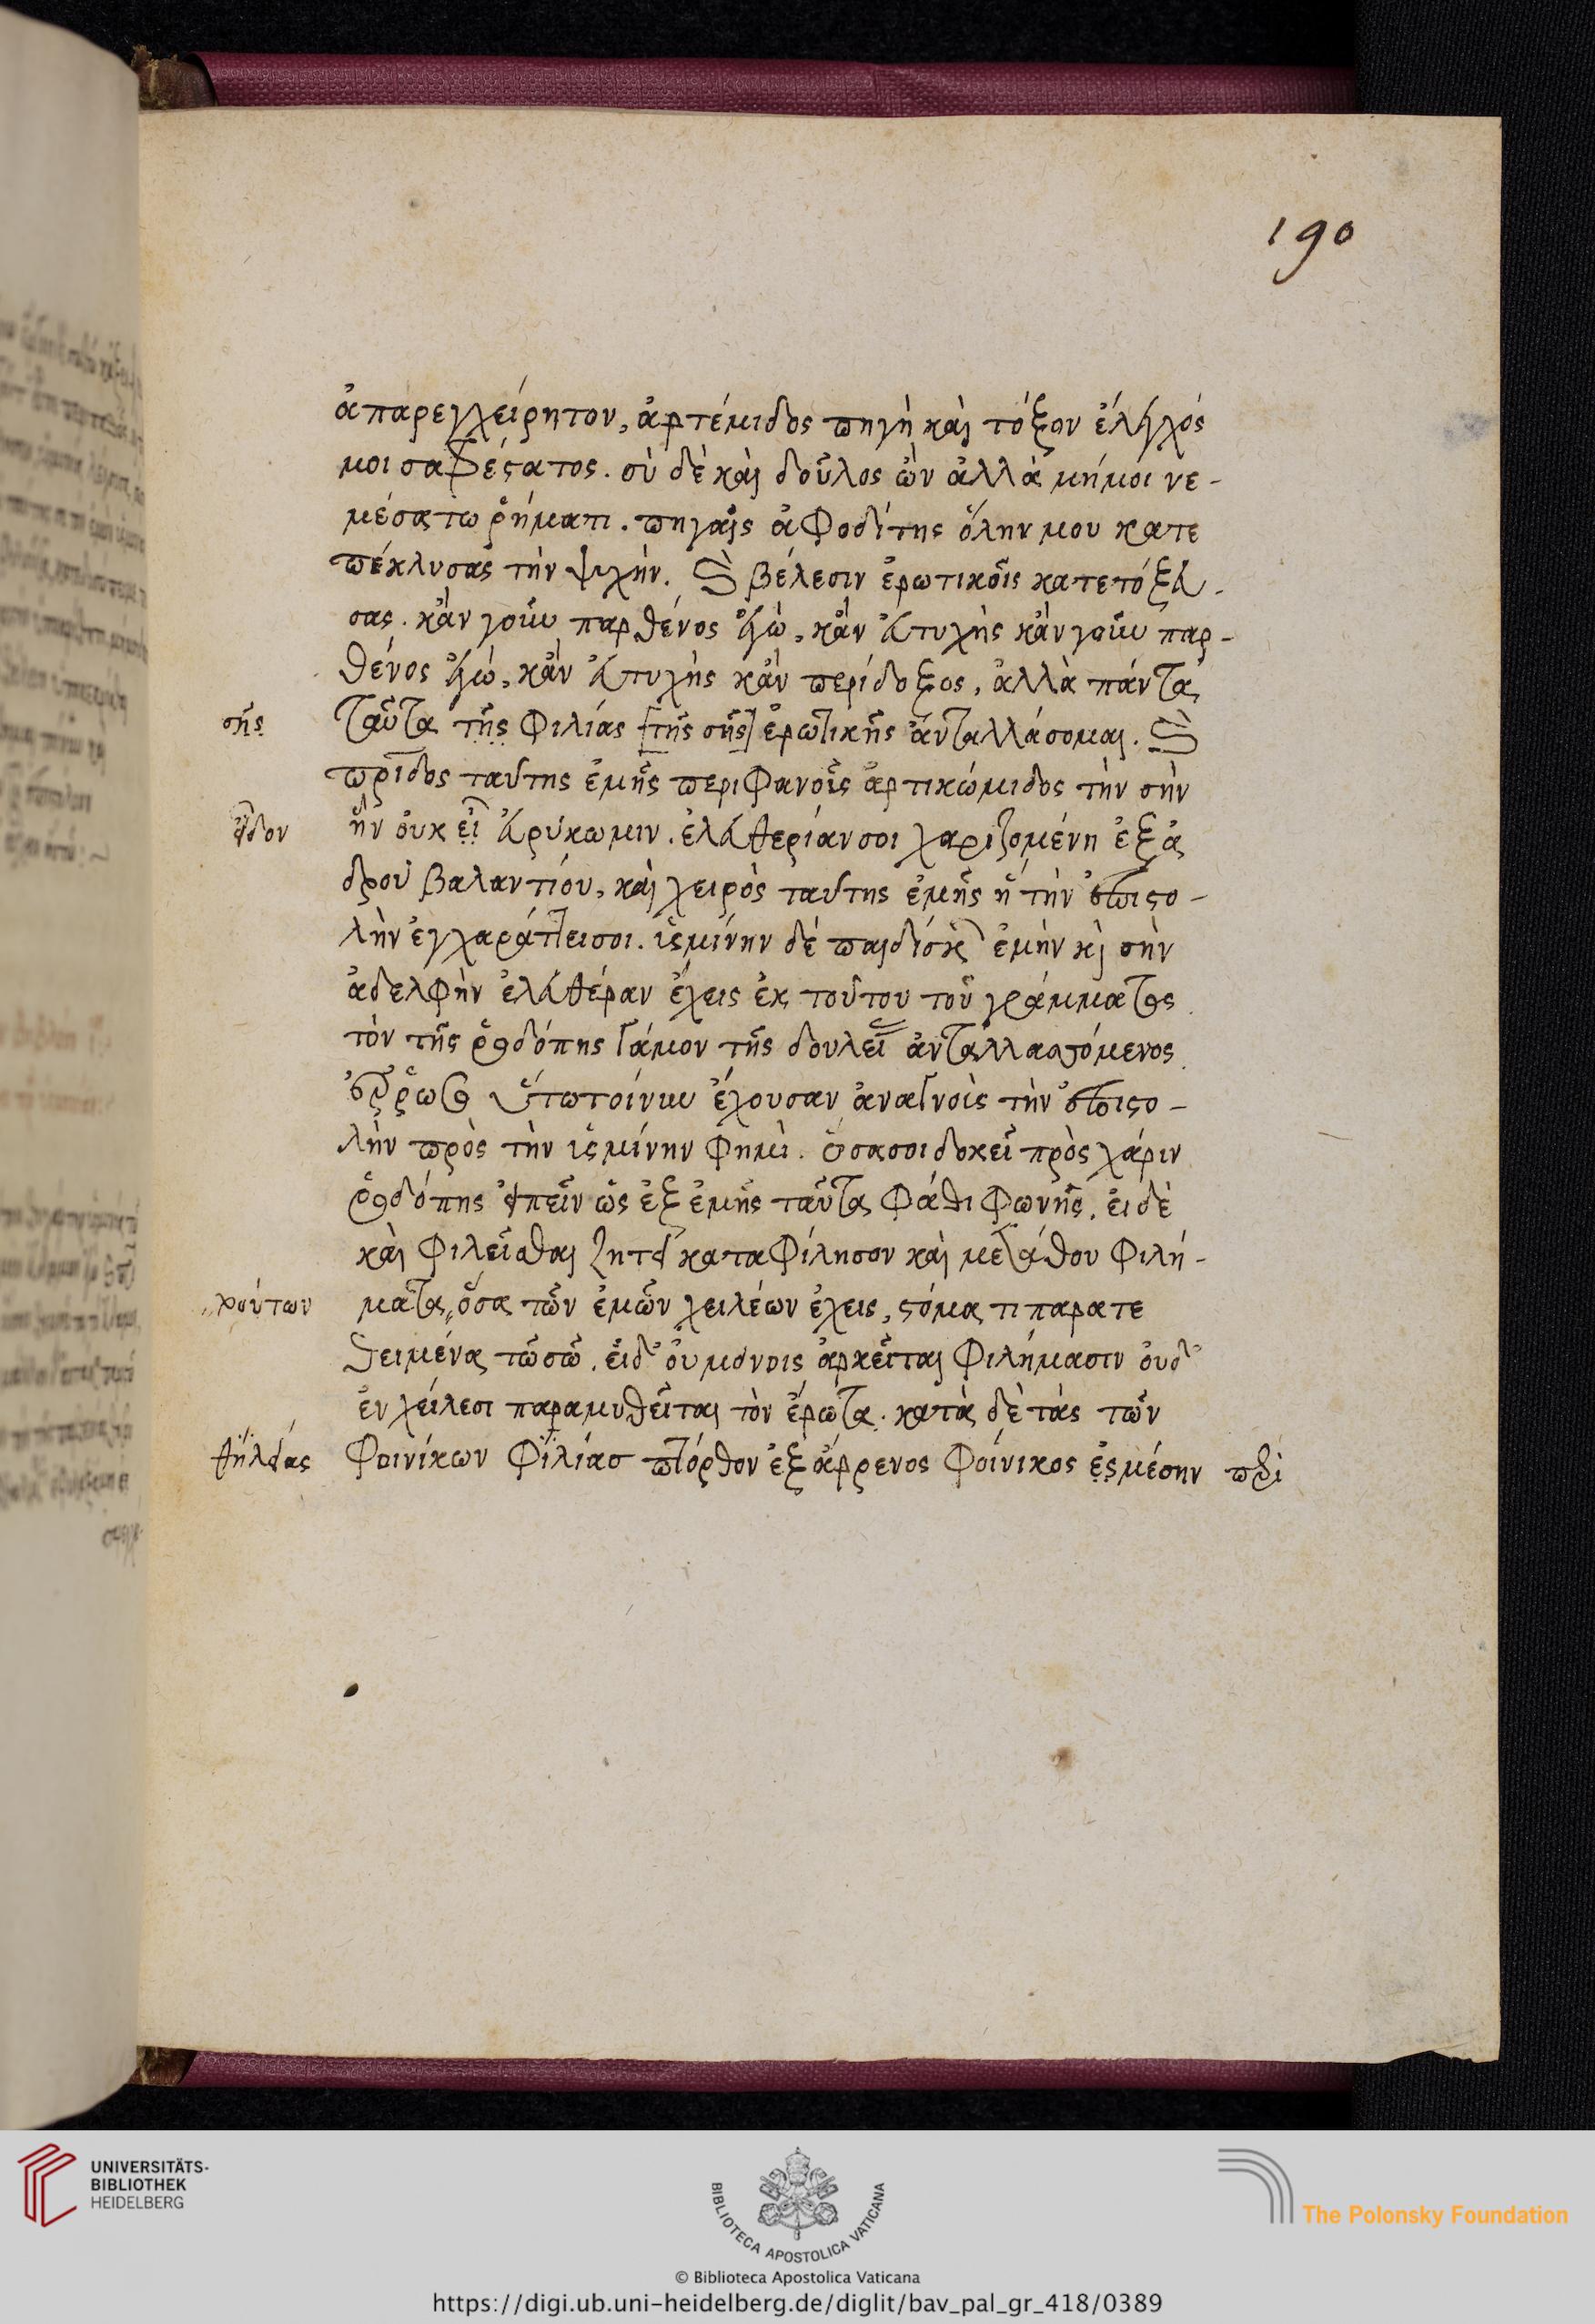 190
ἀπαρεγχείρητον, ἀρτέμιδος πηγὴ καὶ τόξον ἔλεγχός
μοι σαφέστατος. σὺ δὲ καὶ δοῦλος ὢν ἀλλὰ μήμοι νε-
μέσα τω ῥήματι. πηγαῖς ἀφροδίτης ὅλην μου κατε
πέκλυσας τὴν ψυχήν. καὶ βέλεσιν ἐρωτικοῖς κατετόξευ-
σας. κἂν γοῦν παρθένος ἐγὼ, κἂν εὐτυχὴς κἂν γοῦν παρ-
θένος ἐγὼ, κἂν εὐτυχὴς κἂν περίδοξος, ἀλλὰ πάντα
σῆς ταῦτα τῆς φιλίας [τῆς σῆς] ἐρωτικῆς ἀνταλλάσομαι. καὶ
πρίδος ταύτης ἐμῆς περιφανοῖς ἀρτικώμιδος τὴν σὴν
εἶδον ἣν οὐκ εἶ εὐρύκωμιν. ἐλευθερίαν σοι χαριζομένη ἐξ ἁ
δροῦ βαλαντίου, καὶ χειρὸς ταύτης ἐμῆς ἣ τὴν ἐπιστο-
λὴν ἐγχαράττει σοι. ἰσμίνην δέ παιδίσκην ἐμὴν καὶ σὴν
ἀδελφὴν ἐλευθέραν ἔχεις ἐκ τούτου τοῦ γράμματος
τὸν τῆς ῥοδόπης γάμον τῆς δουλείας ἀνταλλασσόμενος.
ἔρρωσο οὕτω τοίνυν ἔχουσαν ἀναγνοὺς τὴν ἐπιστο-
λὴν πρὸς τὴν ἰσμίνην φημὶ. ὅσα σοι δοκεῖ πρὸς χάριν
ῥοδόπης εἰπεῖν ὡς ἐξ ἐμῆς ταῦτα φάθι φωνῆς. εἰ δὲ
καὶ φιλεῖσθαι ζητεῖ καταφίλησον καὶ μετάθου φιλή-
χρούτων ματα, ὅσα τῶν ἐμῶν χειλέων ἔχεις, στόμα τι παρατε
θειμένα τῶ σῶ. εἰδ' οὐ μόνοις ἀρκεῖται φιλήμασιν οὐδ'
ἐν χείλεσι παραμυθεῖται τὸν ἔρωτα. κατὰ δὲ τὰς τῶν
θηλείας φοινίκων φιλίασ πτόρθον ἐξ ἄρρενος φοίνικος ἐς μέσην περὶ
UNIVERSITÄTS-
BIBLIOTHEK
HEIDELBERG
BIBLIOTECA APOSTOLICA VATICANA
The Polonsky Foundation
© Biblioteca Apostolica Vaticana
https://digi.ub.uni-heidelberg.de/diglit/bav_pal_gr_418/0389